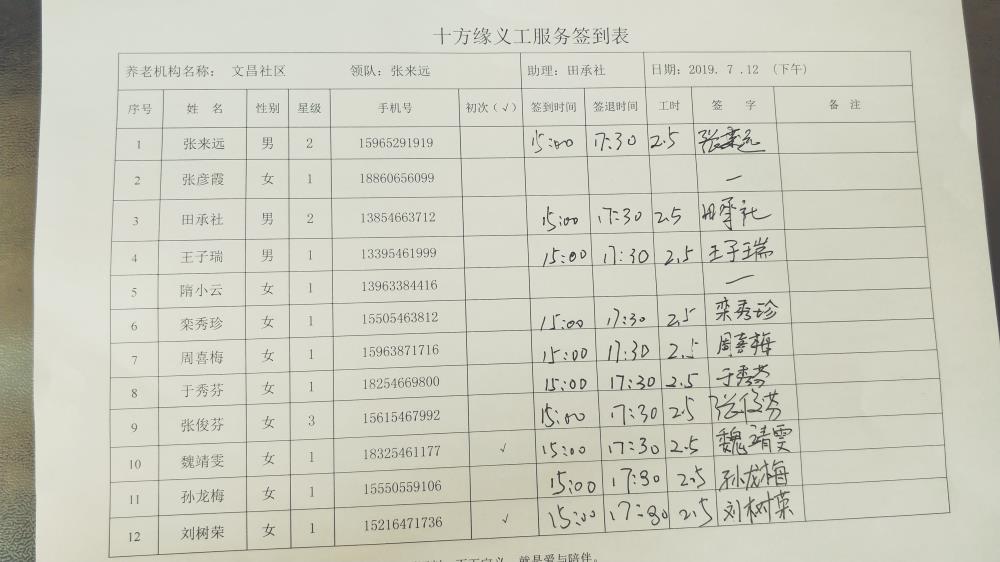 十方缘义工服务签到表
养老机构名称： 文昌社区 领队：张来远 助理：田承社 日期：2019. 7 .12 （下午）
序号 姓 名 性别 星级 手机号 初次（√） 签到时间 签退时间 工时 签 字 备 注
1 张来远 男 2 15965291919 15:00 17:30 2.5 张来远
2 张彦霞 女 1 18860656099 —
3 田承社 男 2 13854663712 15:00 17:30 2.5 田承社
4 王子瑞 男 1 13395461999 15:00 17:30 2.5 王子瑞
5 隋小云 女 1 13963384416 —
6 栾秀珍 女 1 15505463812 15:00 17:30 2.5 栾秀珍
7 周喜梅 女 1 15963871716 15:00 17:30 2.5 周喜梅
8 于秀芬 女 1 18254669800 15:00 17:30 2.5 于秀芬
9 张俊芬 女 3 15615467992 15:00 17:30 2.5 张俊芬
10 魏靖雯 女 1 18325461177 √ 15:00 17:30 2.5 魏靖雯
11 孙龙梅 女 1 15550559106 15:00 17:30 2.5 孙龙梅
12 刘树荣 女 1 15216471736 √ 15:00 17:30 2.5 刘树荣
就是爱与陪伴。